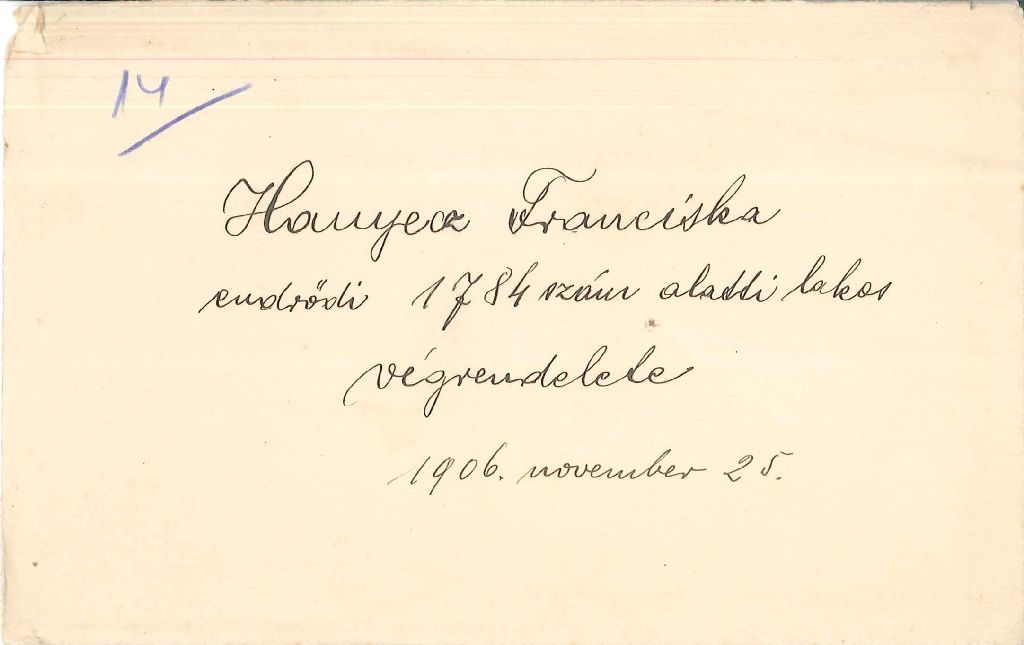 14
Hanyecz Franciska
endrődi 1784 szám alatti lakos
végrendelete
1906. november 25.